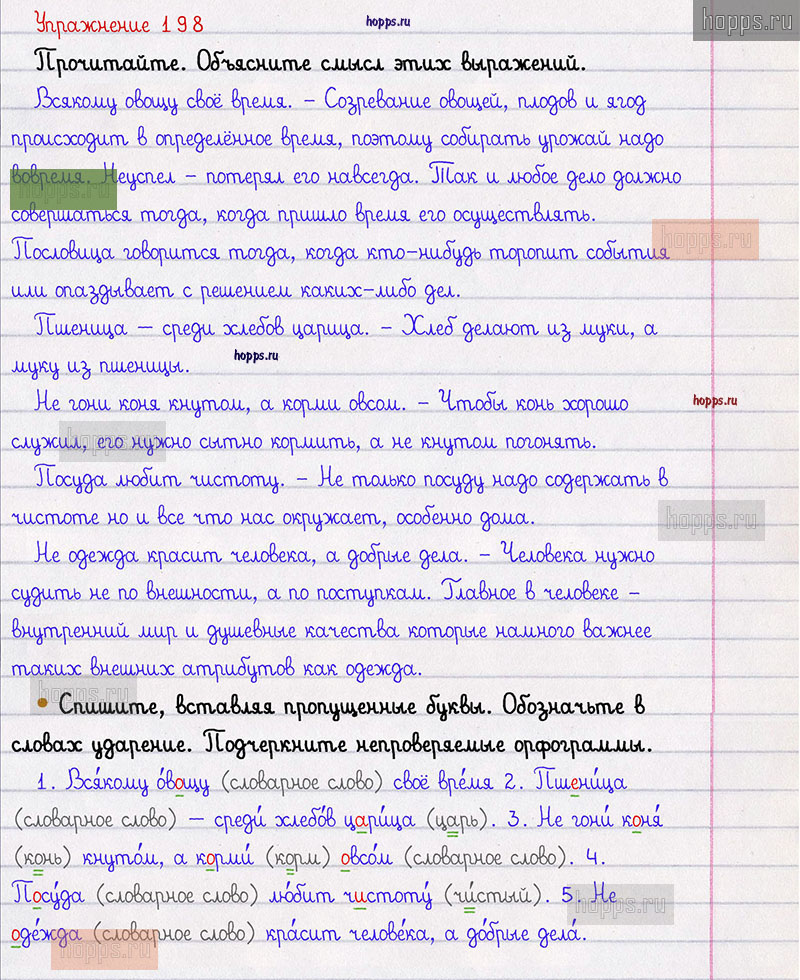 Упражнение 198
hopps.ru
hopps.ru
Прочитайте. Объясните смысл этих выражений.
Всякому овощу своё время. – Созревание овощей, плодов и ягод
происходит в определённое время, поэтому собирать урожай надо
вовремя. Неуспел – потерял его навсегда. Так и любое дело должно
hopps.ru
совершаться тогда, когда пришло время его осуществлять.
hopps.ru
Пословица говорится тогда, когда кто-нибудь торопит события
или опаздывает с решением каких-либо дел.
Пшеница — среди хлебов царица. – Хлеб делают из муки, а
муку из пшеницы.
hopps.ru
Не гони коня кнутом, а корми овсом. – Чтобы конь хорошо
hopps.ru
служил, его нужно сытно кормить, а не кнутом погонять.
hopps.ru
Посуда любит чистоту. – Не только посуду надо содержать в
чистоте но и все что нас окружает, особенно дома.
hopps.ru
Не одежда красит человека, а добрые дела. – Человека нужно
судить не по внешности, а по поступкам. Главное в человеке –
внутренний мир и душевные качества которые намного важнее
таких внешних атрибутов как одежда.
hopps.ru
• Спишите, вставляя пропущенные буквы. Обозначьте в
словах ударение. Подчеркните непроверяемые орфограммы.
1. Вся́кому о́вощу (словарное слово) своё вре́мя 2. Пшени́ца
(словарное слово) — среди́ хлебо́в цари́ца (ца́рь). 3. Не гони́ коня́
(ко́нь) кнуто́м, а корми́ (ко́рм) овсо́м (словарное слово). 4.
Посу́да (словарное слово) лю́бит чистоту́ (чи́стый). 5. Не
hopps.ru
оде́жда (словарное слово) кра́сит челове́ка, а до́брые дела́.
hopps.ru